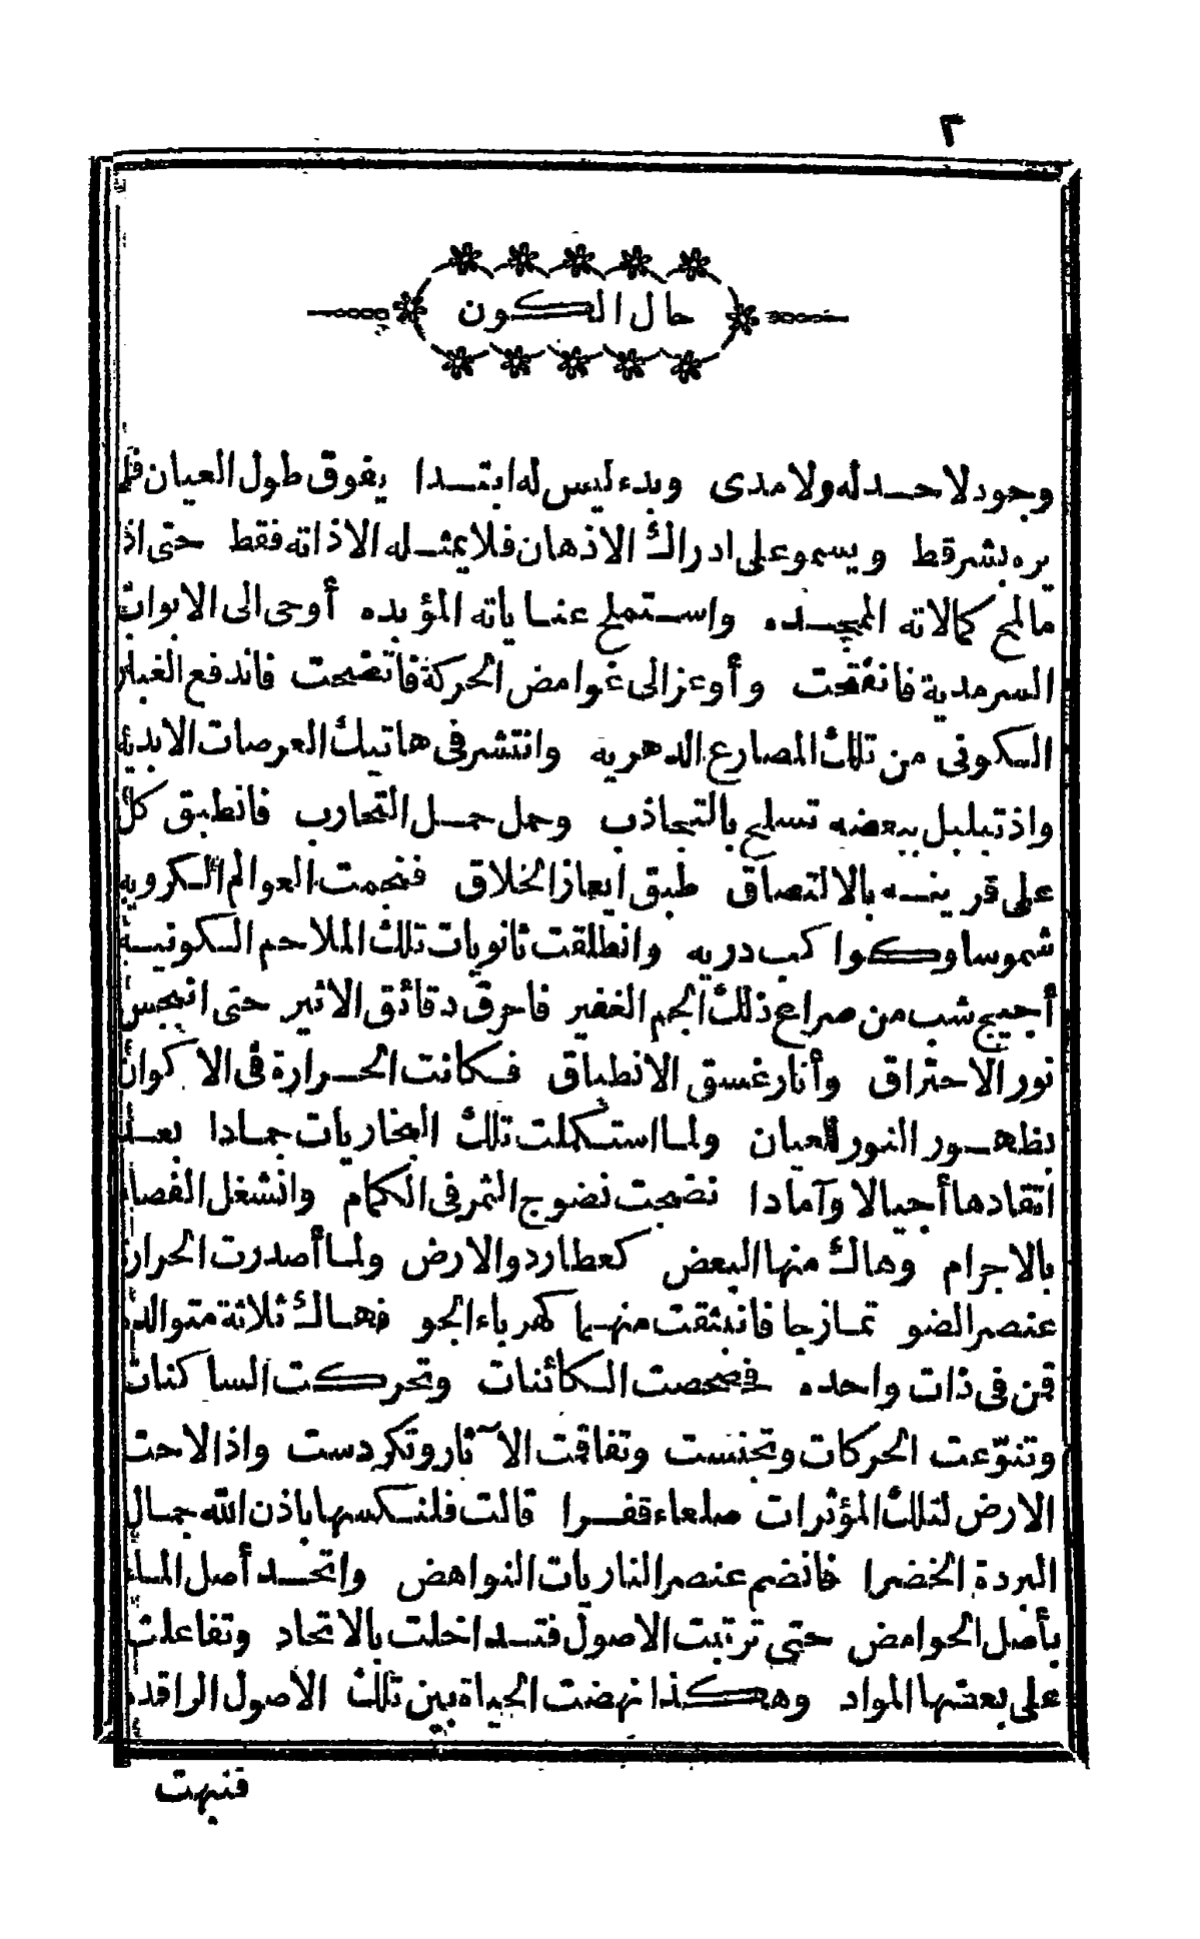 ٢
حال الكون
وجود لا حد له ولا مدى وبدء ليس له ابتدا يفوق طول العيان فلم
يره بشر قط ويسمو على ادراك الاذهان فلا يمثله الا ذاته فقط حتى اذا
ما لمح كمالاته الممجده واستملح عناياته المؤبده أوحى الى الابواب
السرمدية فانفتحت وأوعز الى غوامض الحركة فاتضحت فاندفع الغبار
الكونى من تلك المصارع الدهريه وانتشر فى هاتيك العرصات الابديه
واذ تبلبل ببعضه تسلح بالتجاذب وحمل حمل التحارب فانطبق كل
على قرينه بالالتصاق طبق ايعاز الخلاق فنجمت العوالم الكرويه
شموسا وكواكب دريه وانطلقت ثانويات تلك الملاحم الكونيه
أجيج شب من صراع ذلك الجم الغفير فاحرق دقائق الاثير حتى انبجس
نور الاحتراق وأنار غسق الانطباق فكانت الحرارة فى الاكوان
بظهور النور للعيان ولما استكملت تلك البخاريات جمادا بعد
اتقادها أجيالا وآمادا نضجت نضوج الثمر فى الكمام وانشغل الفضاء
بالاجرام وهاك منها البعض كعطارد والارض ولما أصدرت الحرارة
عنصر الضو تمازجا فانبثقت منهما كهرباء الجو فهاك ثلاثة متوالده
قمن فى ذات واحده فمحصت الكائنات وتحركت الساكنات
وتنوّعت الحركات وتجنست وتفاقمت الآثار وتكردست واذ لاحت
الارض لتلك المؤثرات صلعاء قفرا قالت فلنكسها باذن الله جمال
البردة الخضرا فانضم عنصر الناريات النواهض واتحد أصل الماء
بأصل الحوامض حتى ترتبت الاصول فتداخلت بالاتحاد وتفاعلت
على بعضها المواد وهكذا نهضت الحياة بين تلك الاصول الراقده
فنبهت